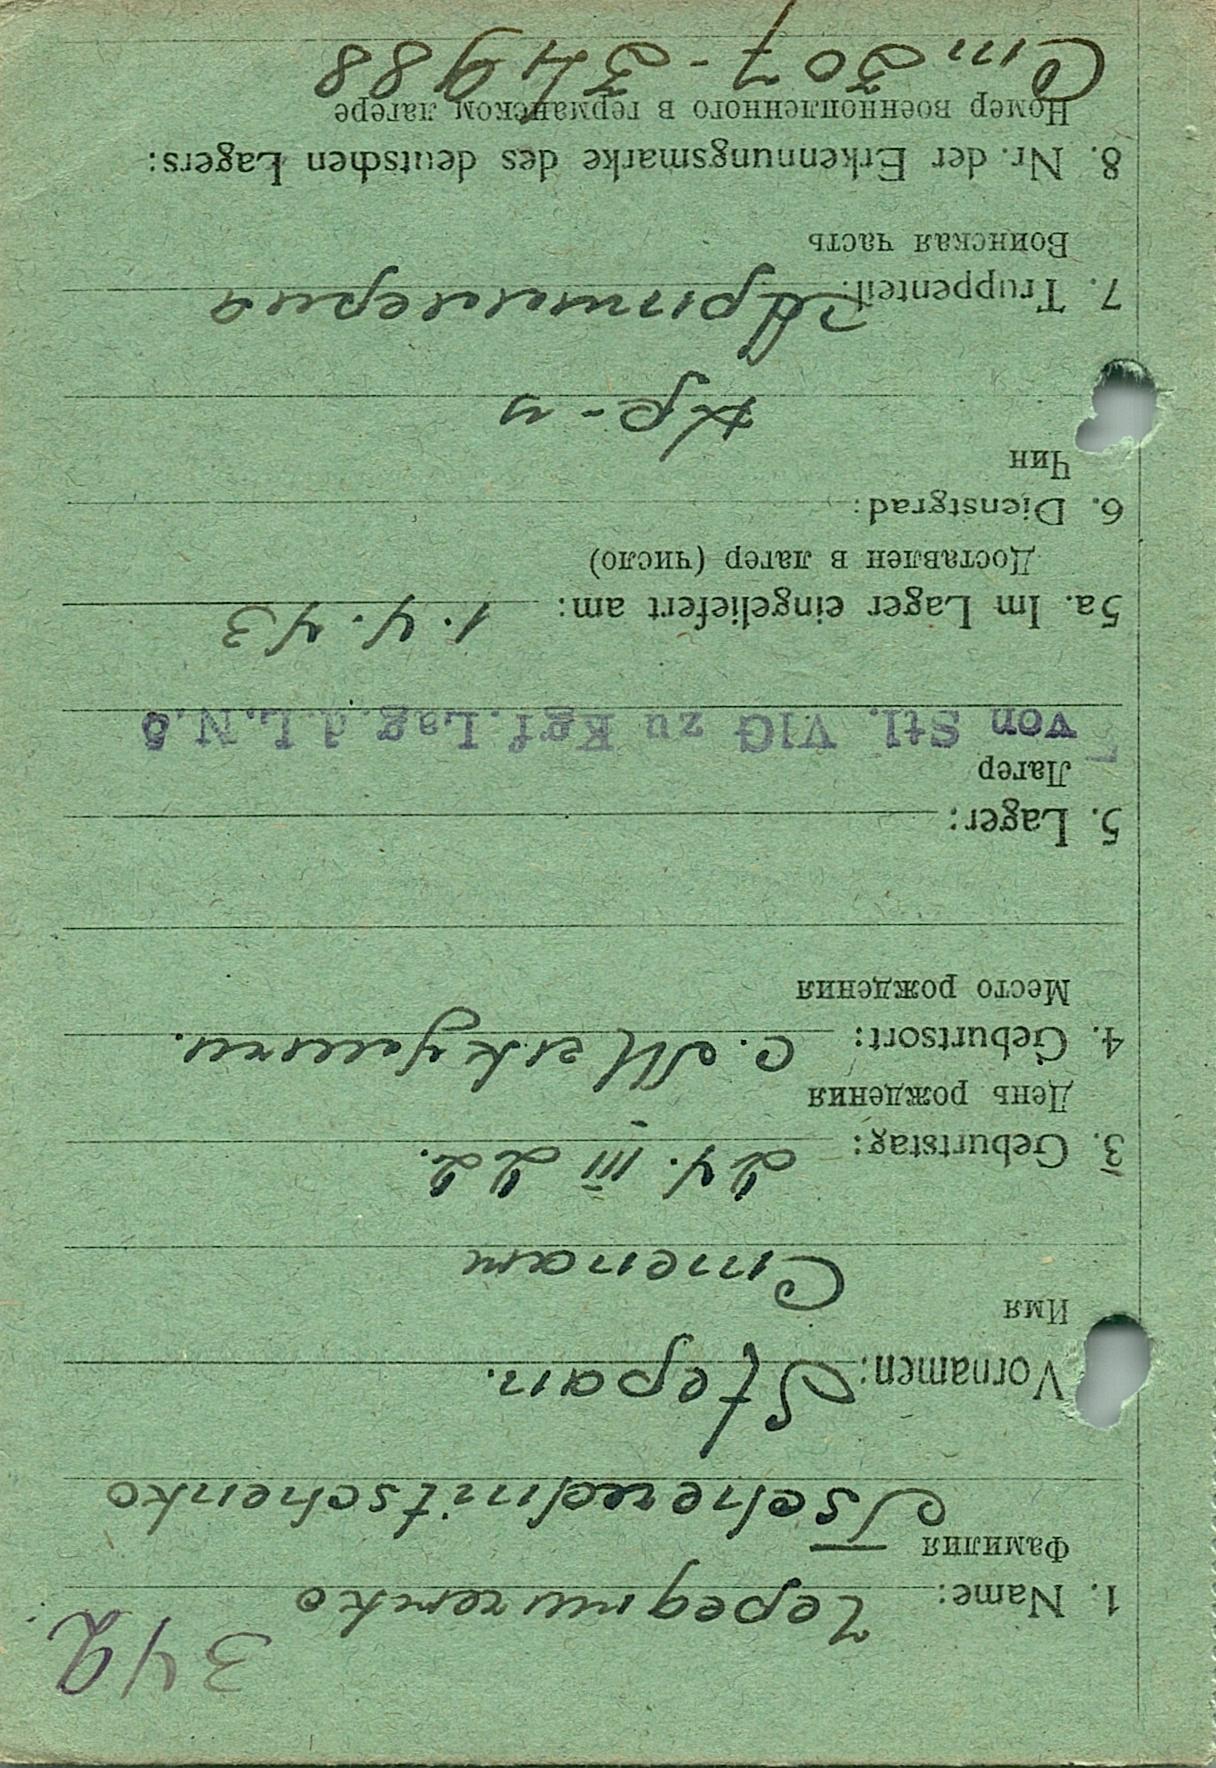 342
1. Name: Чередниченко
Фамилия
Tscherednitschenko
Vornamen: Stepan.
Имя
Степан
3. Geburtstag: 24. III 22.
День рождения
4. Geburtsort: с.
Место рождения
5. Lager:
Лагер
von Stl. VIG zu Kgf. Lag. d. L. N. 6
5a. Im Lager eingeliefert am: 1. 4. 43
Доставлен в лагер (число)
6. Dienstgrad:
Чин
Кр-ц
7. Truppenteil: Артиллерия
Воинская часть
8. Nr. der Erkennungsmarke des deutschen Lagers:
Номер военнопленного в германском лагере
Ст 307 - 34988